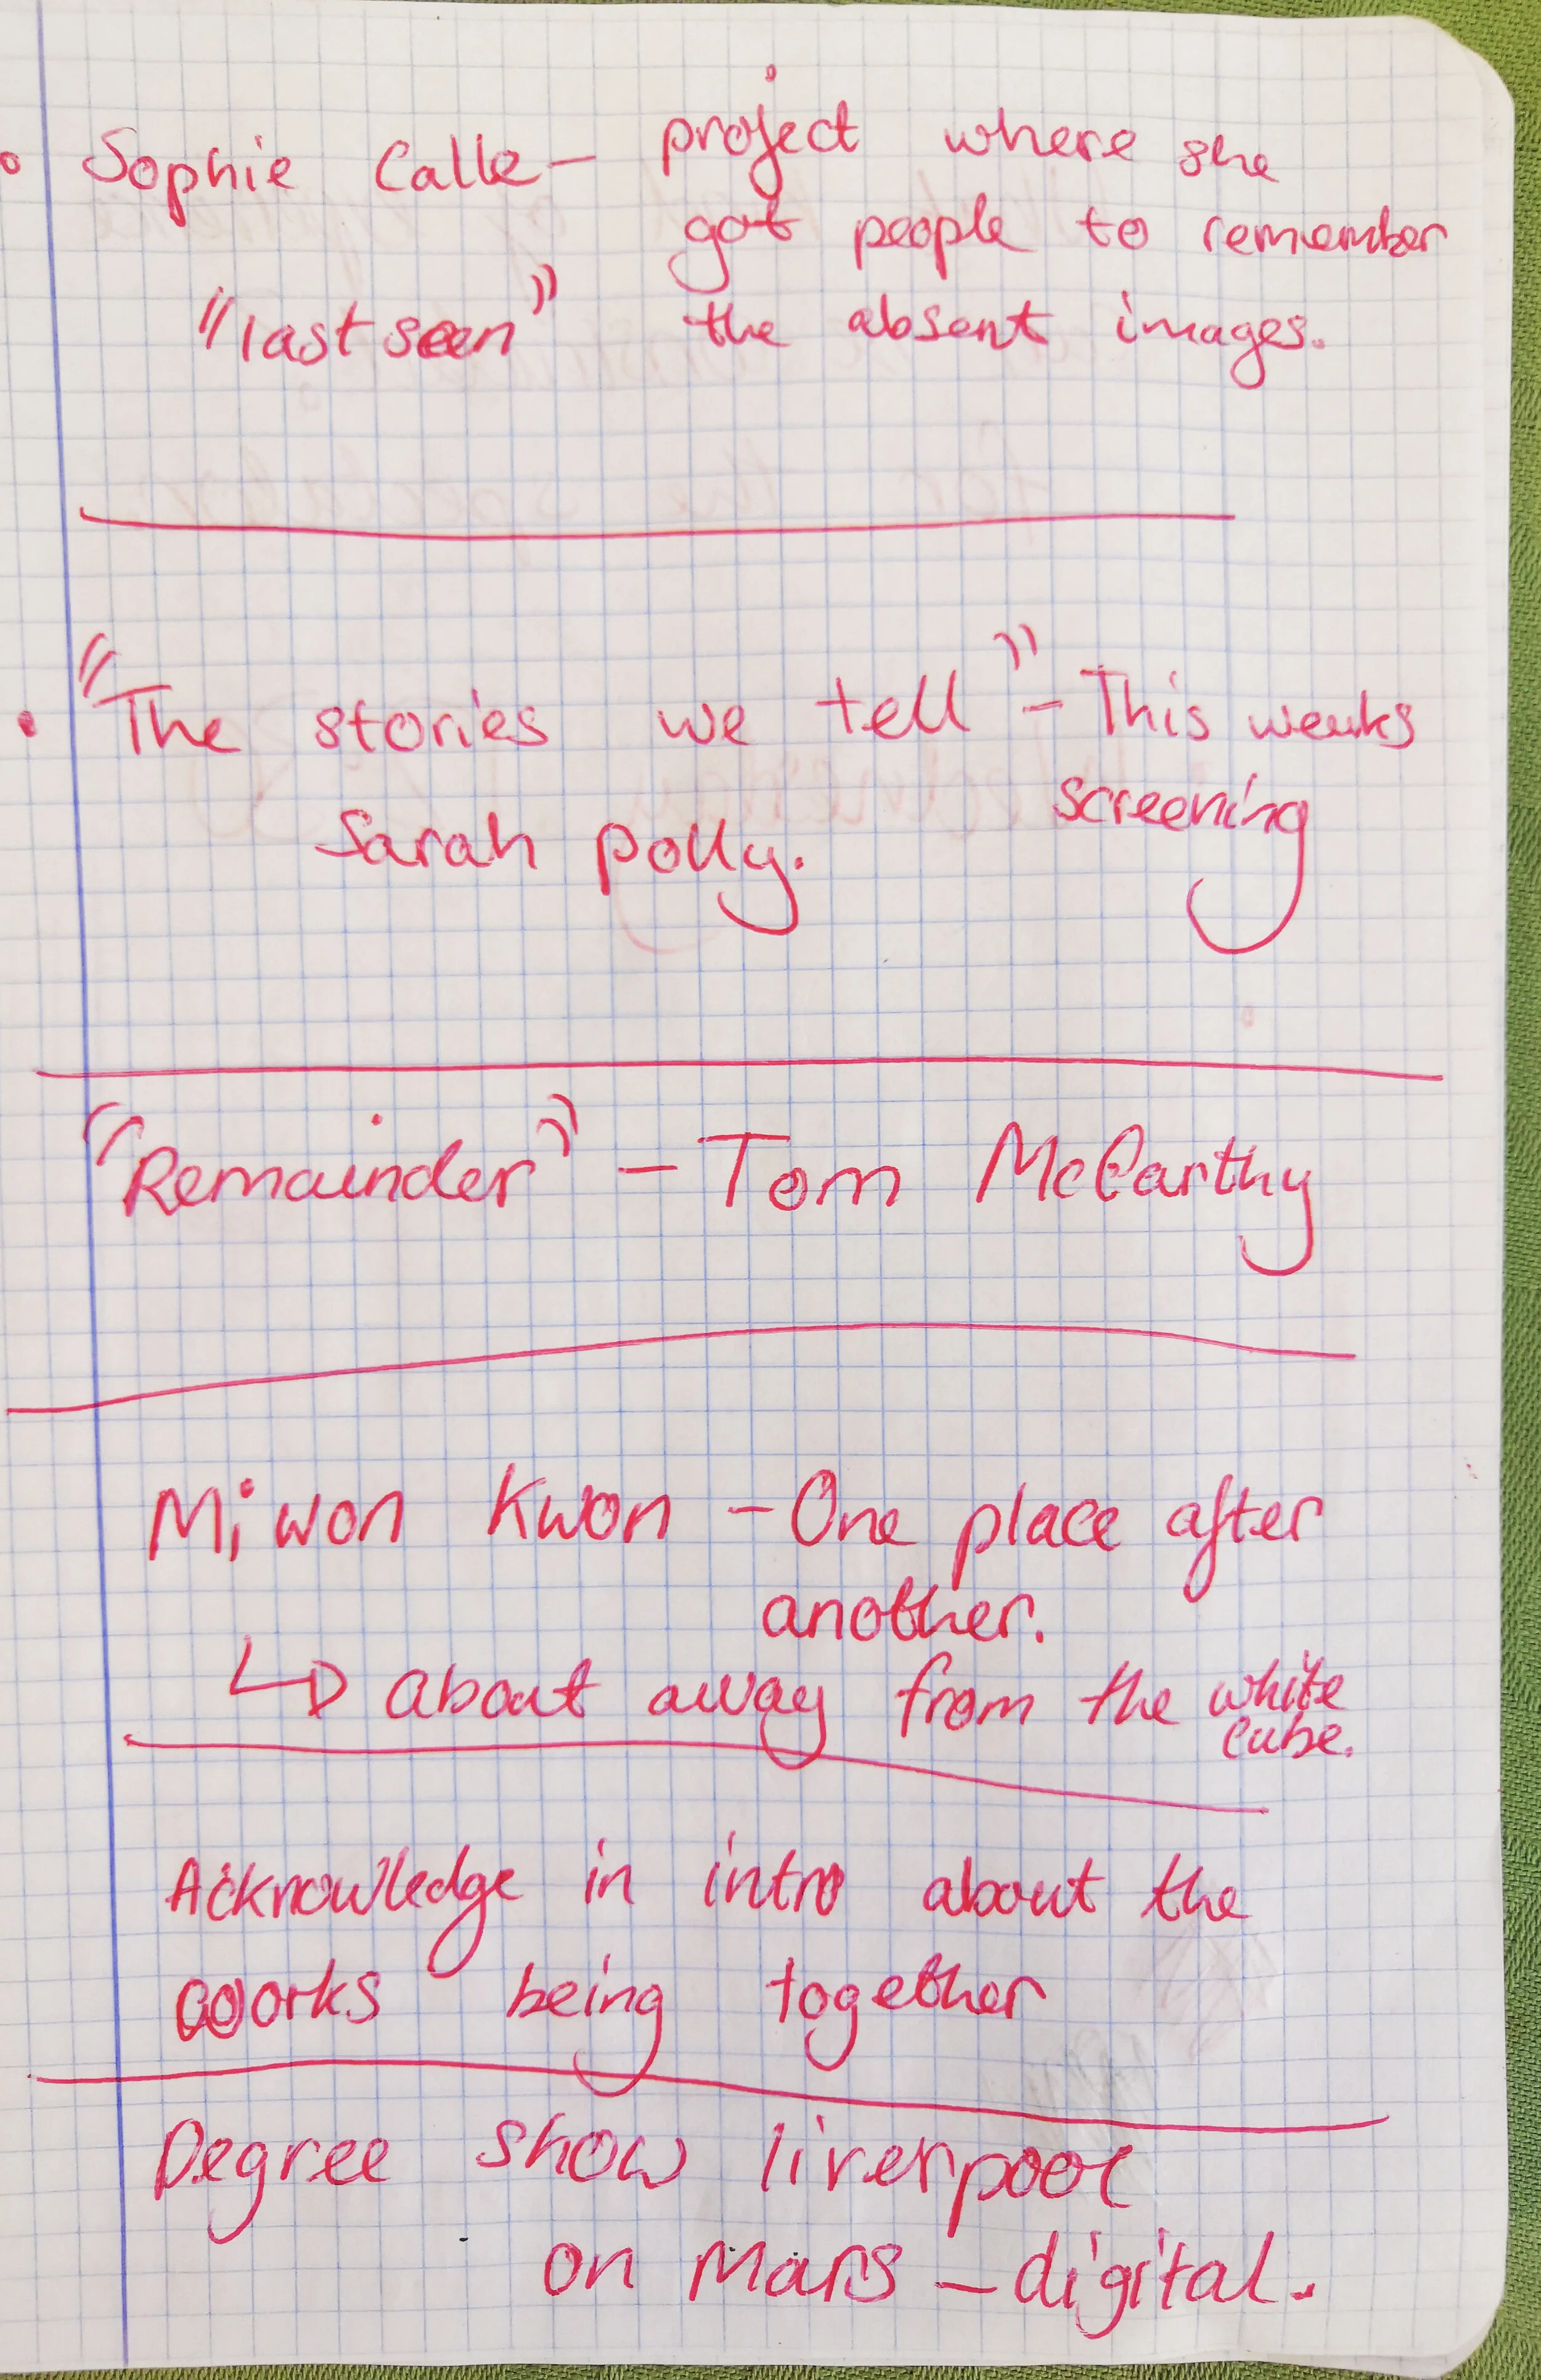 Sophie Calle – project where she
got people to remember
"last seen" the absent images.
"The stories we tell" – This weeks
screening
Sarah polly.
"Remainder" – Tom McCarthy
Miwon Kwon – One place after
another.
↳ about away from the white
cube.
Acknowledge in intro about the
works being together
Degree show liverpool
on Mars – digital.